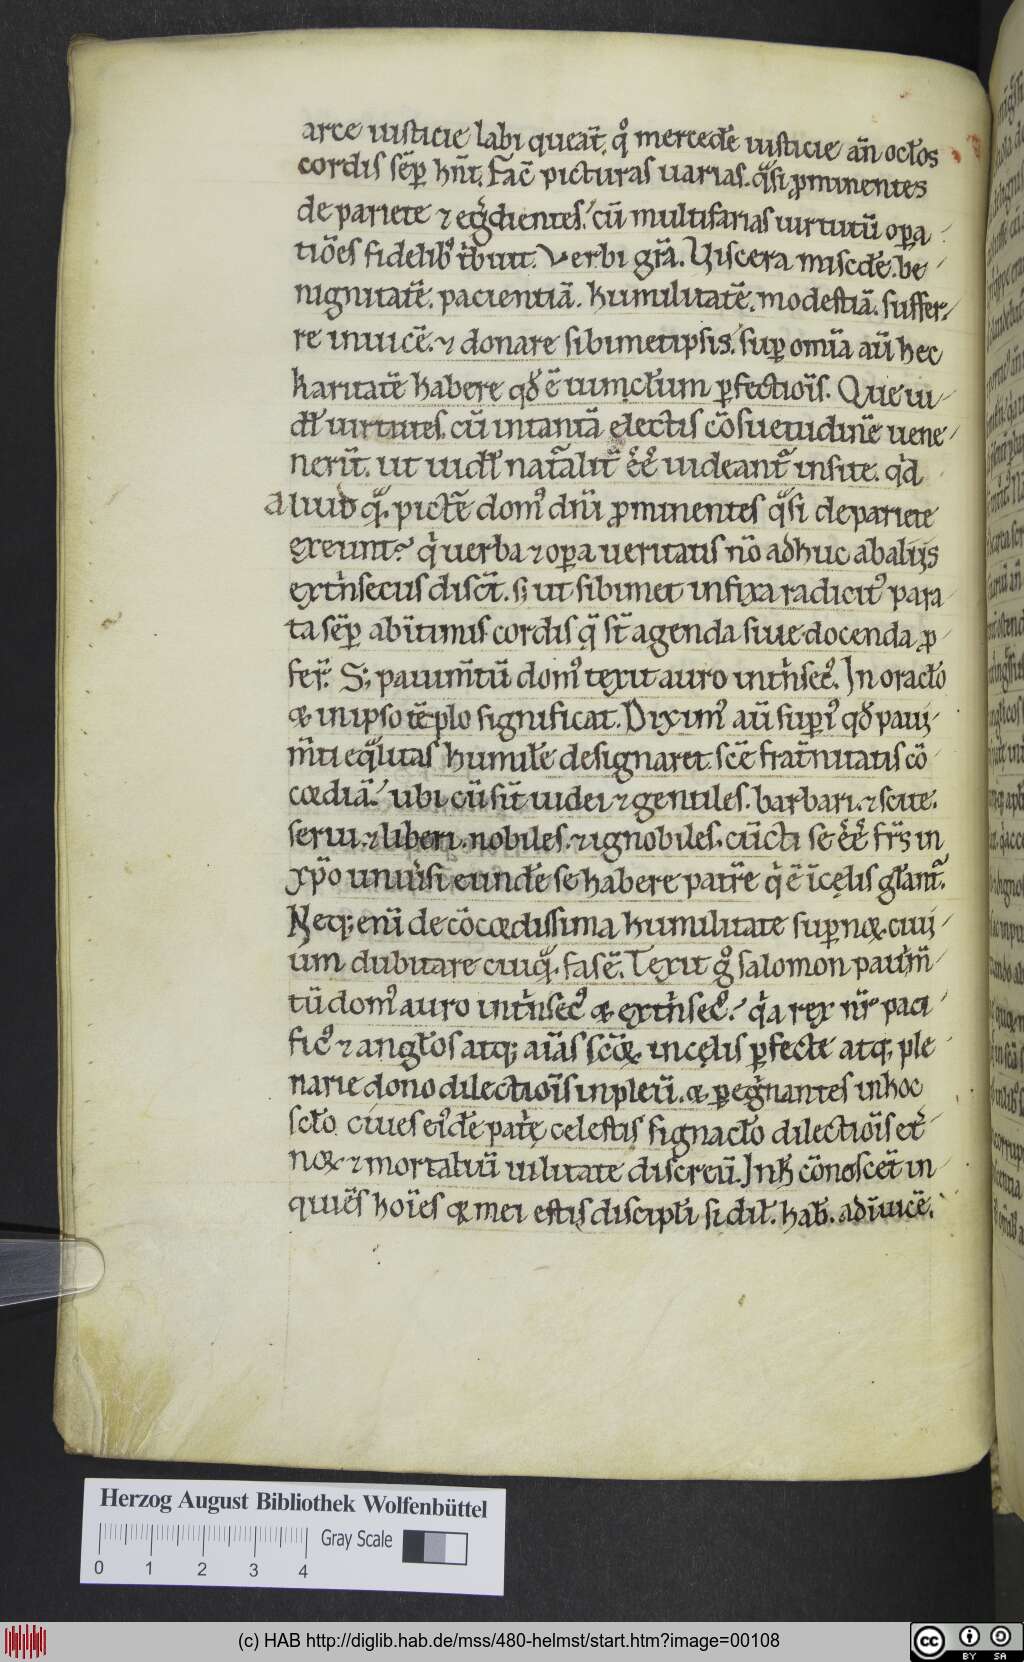 arce iusticie labi queat̄. q̊ mercedē iusticie añ ocl̄os
cordis sēꝑ hñt. Fac̄ picturas uarias. q̈si ꝓminentes
de pariete ⁊ eg̍dientes. cū multifarias uirtutū oꝑa
tiōes fidelib᷒ t̍buit. Verbi gr̄a. Viscera misc̄dē. be
nignitatē. pacientiā. humilitatē. modestiā. suffer
re inuicē. ⁊ donare sibimetipsis. suꝑ om̄a aū hec
karitatē habere qđ ē uincl̄um ꝑfectiōis. Que ui
dl̄ uirtutes. cū in tantā electis cōsuetudinē uene
nerīt. ut uidl̄ nat̄alit̄ eēe uideant᷑ insite. q̍d
aliud q̄. picte dom᷒ dn̄i ꝓminentes q̈si de pariete
exeunt? q̍ uerba ⁊ oꝑa ueritatis nō adhuc ab aliis
ext̍nsecus disct̄. s; ut sibimet infixa radicit᷒ para
ta sēꝑ ab ītimis cordis q̄ st̄ agenda siue docenda ꝓ
fer̄. S; pauim̄tū dom᷒ texit auro int̍nsec᷒. In oracl̄o
⁊ in ipso tēplo significat. Dixim᷒ aū suꝑi᷒ qđ paui
m̄ti eq̈litas humilē designaret scē frat̄nitatis cō
cordiā. ubi cū sīt iudei ⁊ gentiles. barbari. ⁊ scite.
serui. ⁊ liberi. nobiles. ⁊ ignobiles. cūcti se eēe fr̄s in
xp̄o uniu̍si eundē se habere patrē q̍ ē ī celis gl̄ant᷑.
Neq; enī de cōcordissima humilitate suꝑnoꝝ ciui
um dubitare cuiq̈. fas ē. Texit g̊ salomon pauim̄
tū dom᷒ auro int̍nsec᷒ ⁊ ext̍nsec᷒. q̍a rex nr̄ paci
fic᷒ ⁊ angl̄os atq; aīas sc̄oꝝ in celis ꝑfecte atq; ple
narie dono dilectiōis inpleū. ⁊ ꝑeg̍nantes in hoc
scl̄o ciues ei᷒dē pat̍e celestis signacl̄o dilectiōis et̍
noꝝ ⁊ mortaliū uilitate discreū. In h̄ cōnoscet̄ in
quiēs hoīes ꝙ mei estis discipl̄i si dil̄. hab̄. ad īuicē.
Herzog August Bibliothek Wolfenbüttel
Gray Scale
0 1 2 3 4
(c) HAB http://diglib.hab.de/mss/480-helmst/start.htm?image=00108
cc BY SA